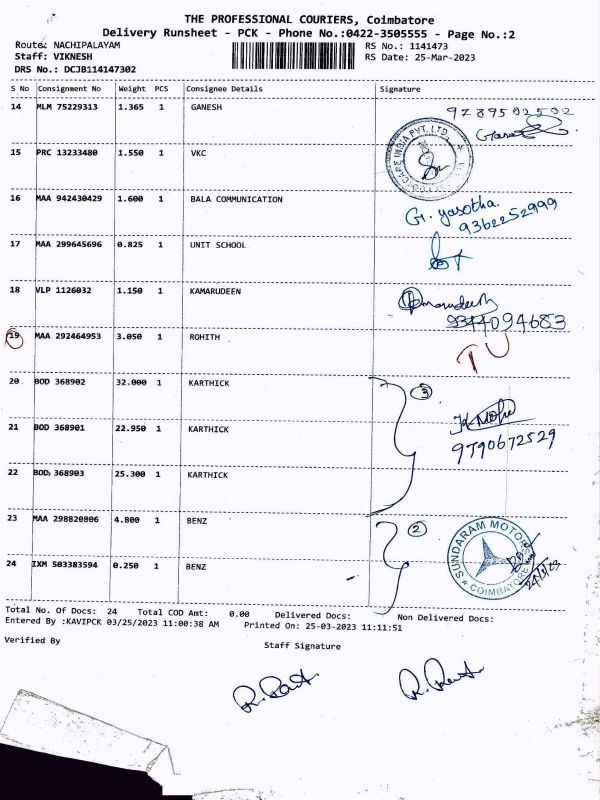 THE PROFESSIONAL COURIERS, Coimbatore
Delivery Runsheet - PCK - Phone No.:0422-3505555 - Page No.:2
Route: NACHIPALAYAM RS No.: 1141473
Staff: VIKNESH RS Date: 25-Mar-2023
DRS No.: DCJB114147302
S No Consignment No Weight PCS Consignee Details Signature
14 MLM 75229313 1.365 1 GANESH 9789502502
15 PRC 13233480 1.550 1 VKC
16 MAA 942430429 1.600 1 BALA COMMUNICATION G. yasotha. 9362252999
17 MAA 299645696 0.825 1 UNIT SCHOOL
18 VLP 1126032 1.150 1 KAMARUDEEN 9344094683
19 MAA 292464953 3.050 1 ROHITH
20 BOD 368902 32.000 1 KARTHICK 3
21 BOD 368901 22.950 1 KARTHICK 9790672529
22 BOD 368903 25.300 1 KARTHICK
23 MAA 298820806 4.800 1 BENZ 2 SUNDARAM MOTORS COIMBATORE
24 IXM 503383594 0.250 1 BENZ
Total No. Of Docs: 24 Total COD Amt: 0.00 Delivered Docs: Non Delivered Docs:
Entered By :KAVIPCK 03/25/2023 11:00:38 AM Printed On: 25-03-2023 11:11:51
Verified By Staff Signature